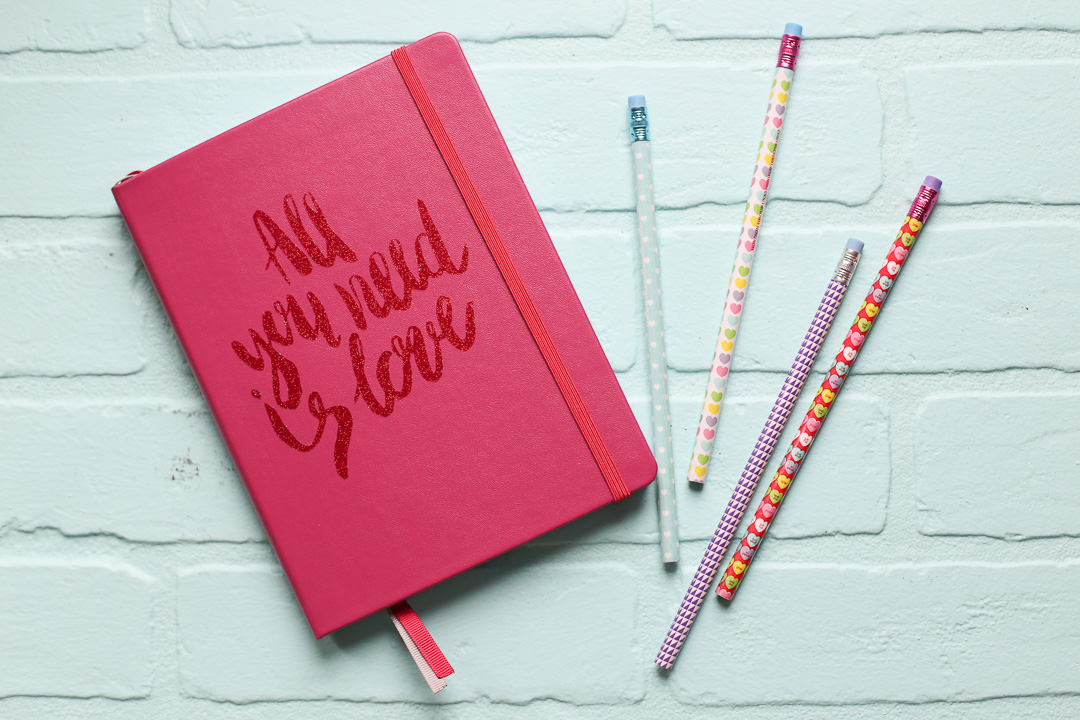 All
you need
is love